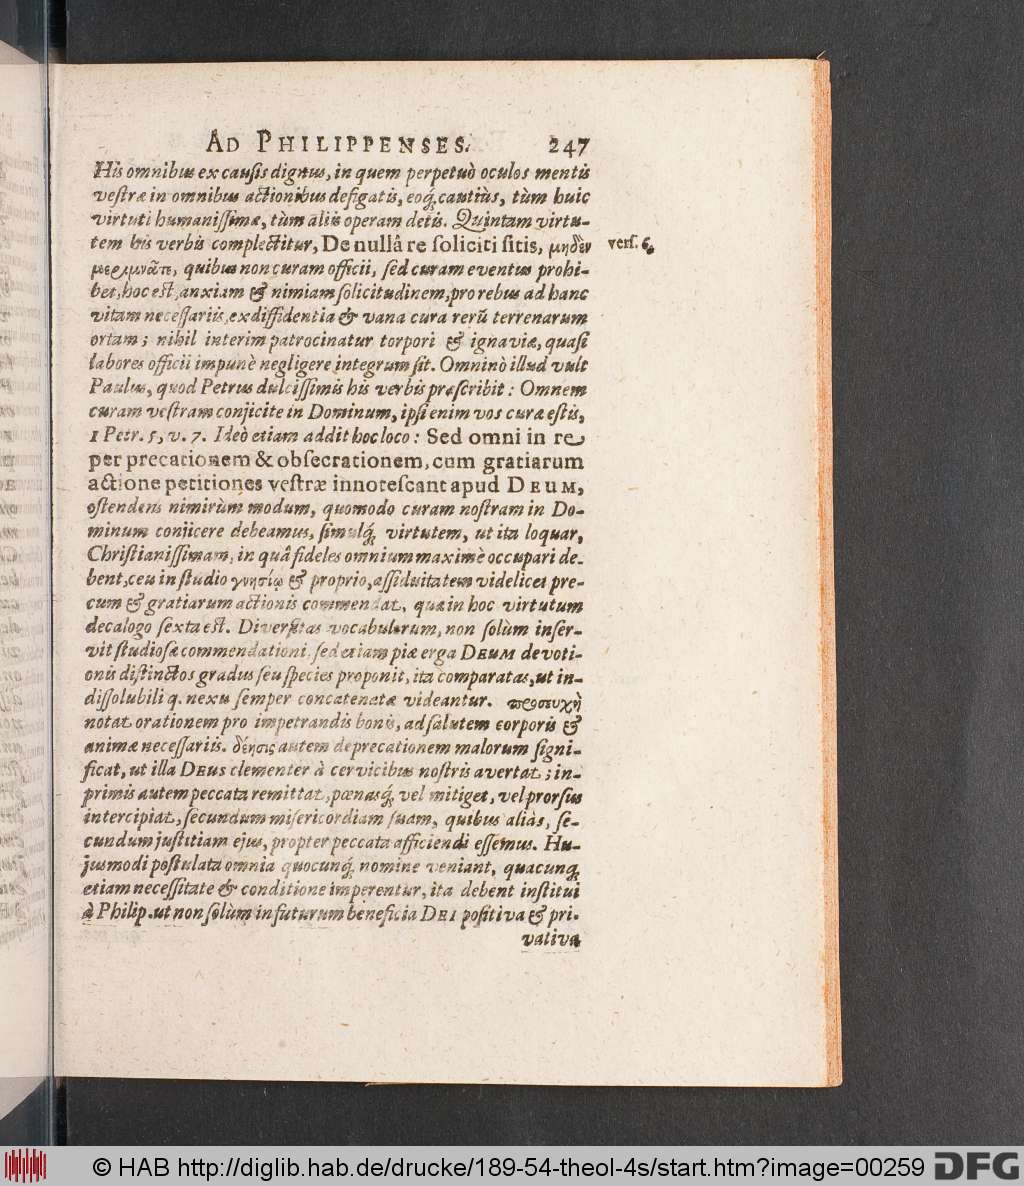 AD PHILIPPENSES. 247
His omnibus ex causis dignus, in quem perpetuò oculos mentis
vestræ in omnibus actionibus defigatis, eoq́; cautiùs, tùm huic
virtuti humanissimæ, tùm aliis operam detis. Quintam virtu-
tem his verbis complectitur, De nullâ re soliciti sitis, μηδὲν
vers. 6.
μεριμνᾶτε, quibus non curam officii, sed curam eventus prohi-
bet, hoc est, anxiam & nimiam solicitudinem, pro rebus ad hanc
vitam necessariis, ex diffidentia & vana cura rerũ terrenarum
ortam; nihil interim patrocinatur torpori & ignaviæ, quasi
labores officii impunè negligere integrum sit. Omninò illud vult
Paulus, quod Petrus dulcissimis his verbis præscribit: Omnem
curam vestram conjicite in Dominum, ipsi enim vos curæ estis,
1 Petr. 5, v. 7. Ideò etiam addit hoc loco: Sed omni in re
per precationem & obsecrationem, cum gratiarum
actione petitiones vestræ innotescant apud DEUM,
ostendens nimirùm modum, quomodo curam nostram in Do-
minum conjicere debeamus, simulq́; virtutem, ut ita loquar,
Christianissimam, in quâ fideles omnium maximè occupari de-
bent, ceu in studio γνησίῳ & proprio, assiduitatem videlicet pre-
cum & gratiarum actionis commendat, quæ in hoc virtutum
decalogo sexta est. Diversitas vocabulorum, non solùm inser-
vit studiosæ commendationi, sed etiam piæ erga DEUM devoti-
onis distinctos gradus seu species proponit, ita comparatas, ut in-
dissolubili q. nexu semper concatenatæ videantur. προσευχὴ
notat orationem pro impetrandis bonis, ad salutem corporis &
animæ necessariis. δέησις autem deprecationem malorum signi-
ficat, ut illa DEUS clementer à cervicibus nostris avertat; in-
primis autem peccata remittat, pœnasq́; vel mitiget, vel prorsus
intercipiat, secundum misericordiam suam, quibus aliàs, se-
cundum justitiam ejus, propter peccata afficiendi essemus. Hu-
jusmodi postulata omnia quocunq́; nomine veniant, quacunq́;
etiam necessitate & conditione imperentur, ita debent institui
à Philip. ut non solùm in futurum beneficia DEI positiva & pri-
vativa
© HAB http://diglib.hab.de/drucke/189-54-theol-4s/start.htm?image=00259 DFG